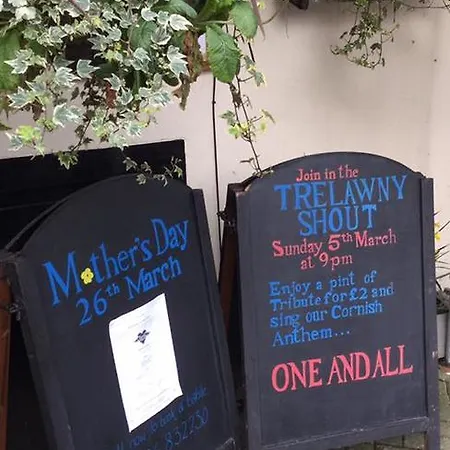 Mother's Day
26th March
now to book a table
832230
Join in the
TRELAWNY
SHOUT
Sunday 5th March
at 9pm
Enjoy a pint of
Tribute for £2 and
sing our Cornish
Anthem...
ONE AND ALL